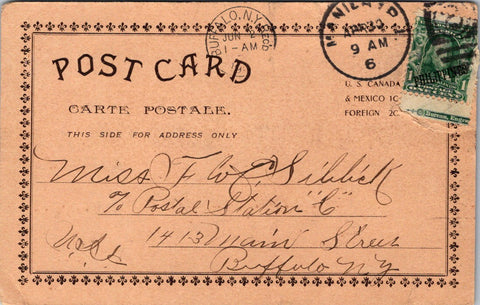 BUFFALO, N.Y.
JUN
1-AM
MANILA, P.I.
APR 30
9 AM
6
PHILIPPINES
1
POST CARD
U. S. CANADA
& MEXICO 1C
FOREIGN 2C
CARTE POSTALE.
THIS SIDE FOR ADDRESS ONLY
Miss F W C. Sibbick
c/o Postal Station "C"
1413 Main Street
Buffalo N.Y.